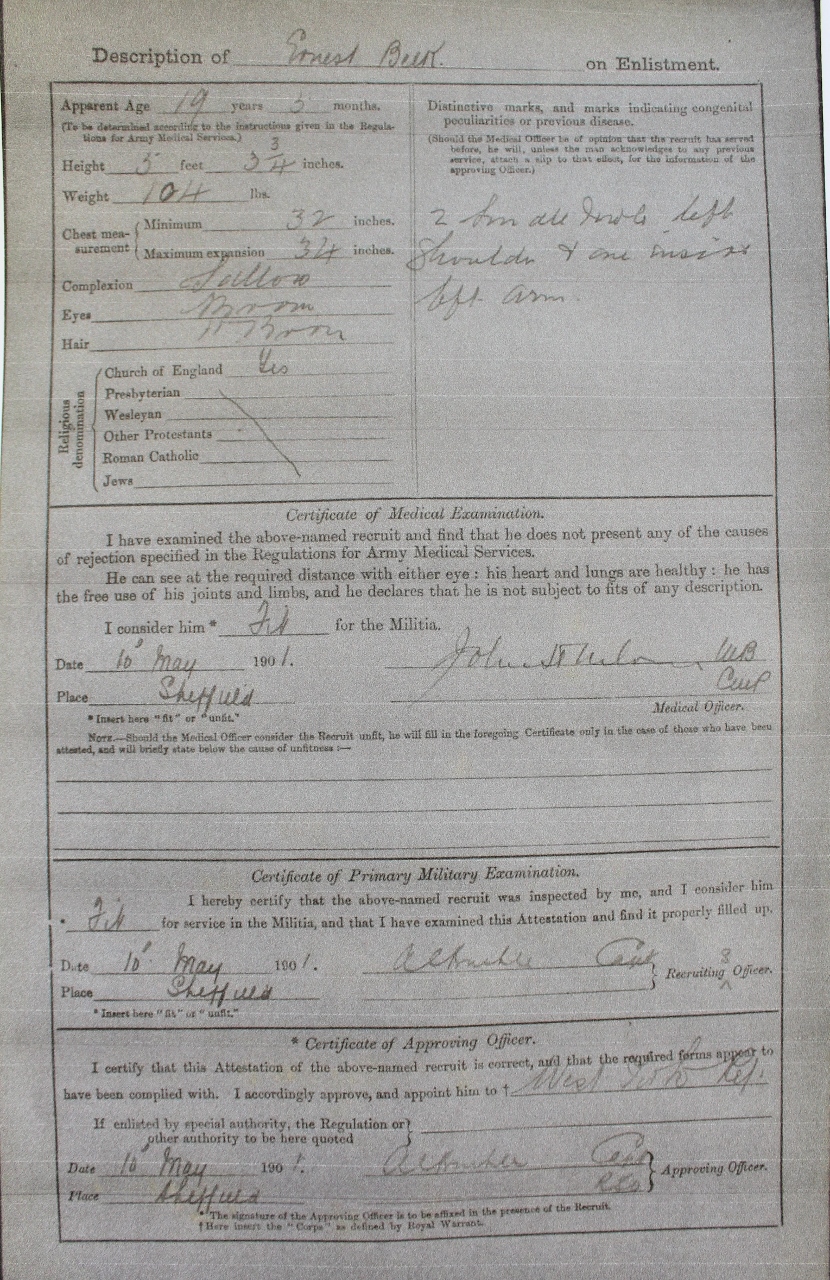 Description of Ernest on Enlistment.
Apparent Age 19 years 5 months.
(To be determined according to the instructions given in the Regula-
tions for Army Medical Services.)
Height 5 feet 3 3/4 inches.
Weight 104 lbs.
Chest mea-
surement
Minimum 32 inches.
Maximum expansion 34 inches.
Complexion Sallow
Eyes Brown
Hair Brown
Religious
denomination
Church of England Yes
Presbyterian
Wesleyan
Other Protestants
Roman Catholic
Jews
Distinctive marks, and marks indicating congenital
peculiarities or previous disease.
(Should the Medical Officer be of opinion that the recruit has served
before, he will, unless the man acknowledges to any previous
service, attach a slip to that effect, for the information of the
approving Officer.)
2 left
shoulder & one inside
left arm.
Certificate of Medical Examination.
I have examined the above-named recruit and find that he does not present any of the causes
of rejection specified in the Regulations for Army Medical Services.
He can see at the required distance with either eye : his heart and lungs are healthy : he has
the free use of his joints and limbs, and he declares that he is not subject to fits of any description.
I consider him * Fit for the Militia.
Date 10 May 1901.
John MB
Place Sheffield
Medical Officer.
* Insert here "fit" or "unfit."
NOTE.—Should the Medical Officer consider the Recruit unfit, he will fill in the foregoing Certificate only in the case of those who have been
attested, and will briefly state below the cause of unfitness :—
Certificate of Primary Military Examination.
I hereby certify that the above-named recruit was inspected by me, and I consider him
* Fit for service in the Militia, and that I have examined this Attestation and find it properly filled up.
Date 10 May 1901.
Capt Recruiting Officer.
Place Sheffield
* Insert here "fit" or "unfit."
* Certificate of Approving Officer.
I certify that this Attestation of the above-named recruit is correct, and that the required forms appear to
have been complied with. I accordingly approve, and appoint him to † West
If enlisted by special authority, the Regulation or
other authority to be here quoted
Date 10 May 1901.
Capt Approving Officer.
Place Sheffield
* The signature of the Approving Officer is to be affixed in the presence of the Recruit.
† Here insert the "Corps" as defined by Royal Warrant.